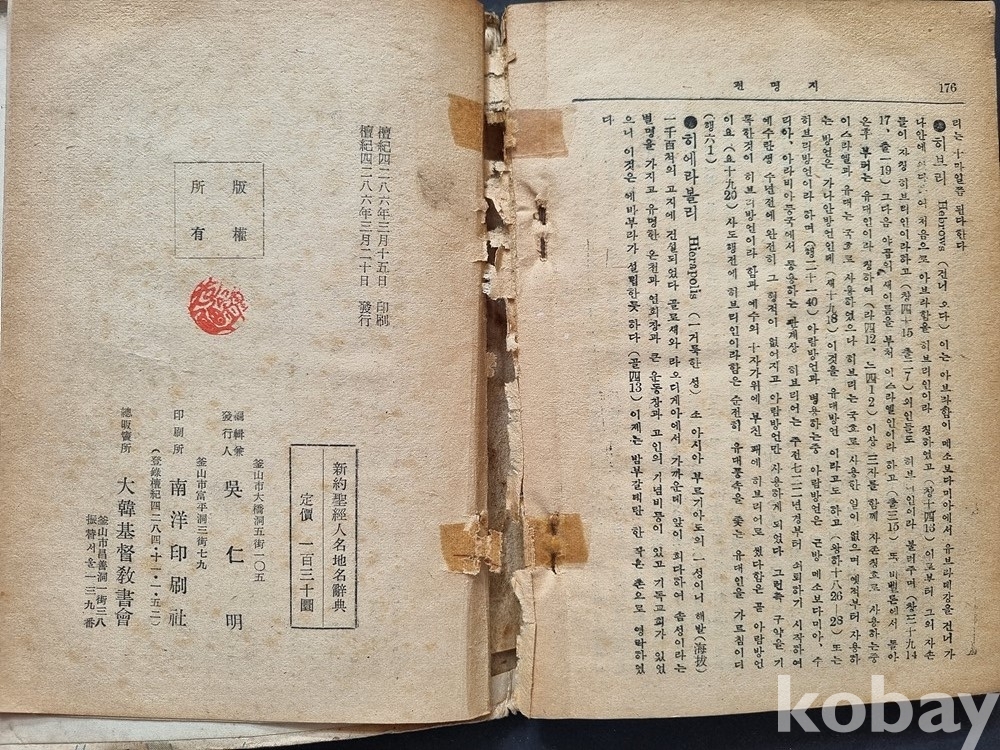 지명전
176
리는 十마일쯤 된다한다
●히브리 Hebrows (건너 오다) 이는 아브라함이 메소보다미아에서 유브라데강을 건너 가
나안에 처음으로 아브라함을 히브리인이라 칭하였고 (창十四13) 이로부터 그의 자손
들이 자칭 히브리인이라하고 (창四十15 출二7) 외인들도 히브리인이라 불러주며 (창三十九14
17, 출一19) 그다음 야곱의 새이름을 부쳐 이스라엘인이라 하고 (출三15) 또 바벨론에서 돌아
온후 부터는 유대인이라 칭하여 (라四12, 느四1 2) 이상 三자를 함께 자존칭호로 사용하는중
이스라엘과 유대는 국호로 사용하였으나 히브리는 국호로 사용한 일이 없으며 옛적부터 자용하
는 방언은 가나안방언인데 (새十九18) 이것을 유대방언 이라고도 하고 (왕하十八26—28) 또는
히브리방언이라 하며 (행二十一40) 아람방언과 병용하는중 아람방언은 근방 메소보다미아, 수
리아, 아라비아등국에서 통용하는 관계상 히브리어는 주전七二二년경부터 쇠퇴하기 시작하여
예수탄생 수년전에 완전히 그 형적이 없어지고 아람방언만 사용하게 되었다 그런즉 구약을 기
록한것이 히브리방언이라 함과 예수의 十자가위에 부친 패에 히브리어로 썼다함은 곧 아람방언
이요 (요十九20) 사도행전에 히브리인이라함은 순전히 유대풍속을 좇는 유대인을 가르침이다
(행六1)
●히에라볼리 Hierapolis (一거룩한 성) 소 아시아 부르기아도의 一성이니 해발(海拔)
一千百척의 고지에 건설되었다 골로새와 라오디게아에서 가까운데 앞이 희다하여 솜성이라는
별명을 가지고 유명한 온천과 연회장과 큰 운동장과 고인의 기념비등이 있고 기독교회가 있었
으니 이것은 에바부라가 설립한듯 하다 (골四13) 이제는 밤부갈테만 한 작은 촌으로 영락하였
다
檀紀四二八六年三月十五日 印刷
檀紀四二八六年三月二十日 發行
版權
所有
新約聖經人名地名辭典
定價 一百三十圜
釜山市大橋洞五街一〇五
編輯兼
發行人 吳仁明
釜山市富平洞三街七九
印刷所 南洋印刷社
(登錄檀紀四二八四·十一·一·五二)
總販賣所 大韓基督敎書會
釜山市昌善洞一街三八
振替서울一一三九番
kobay